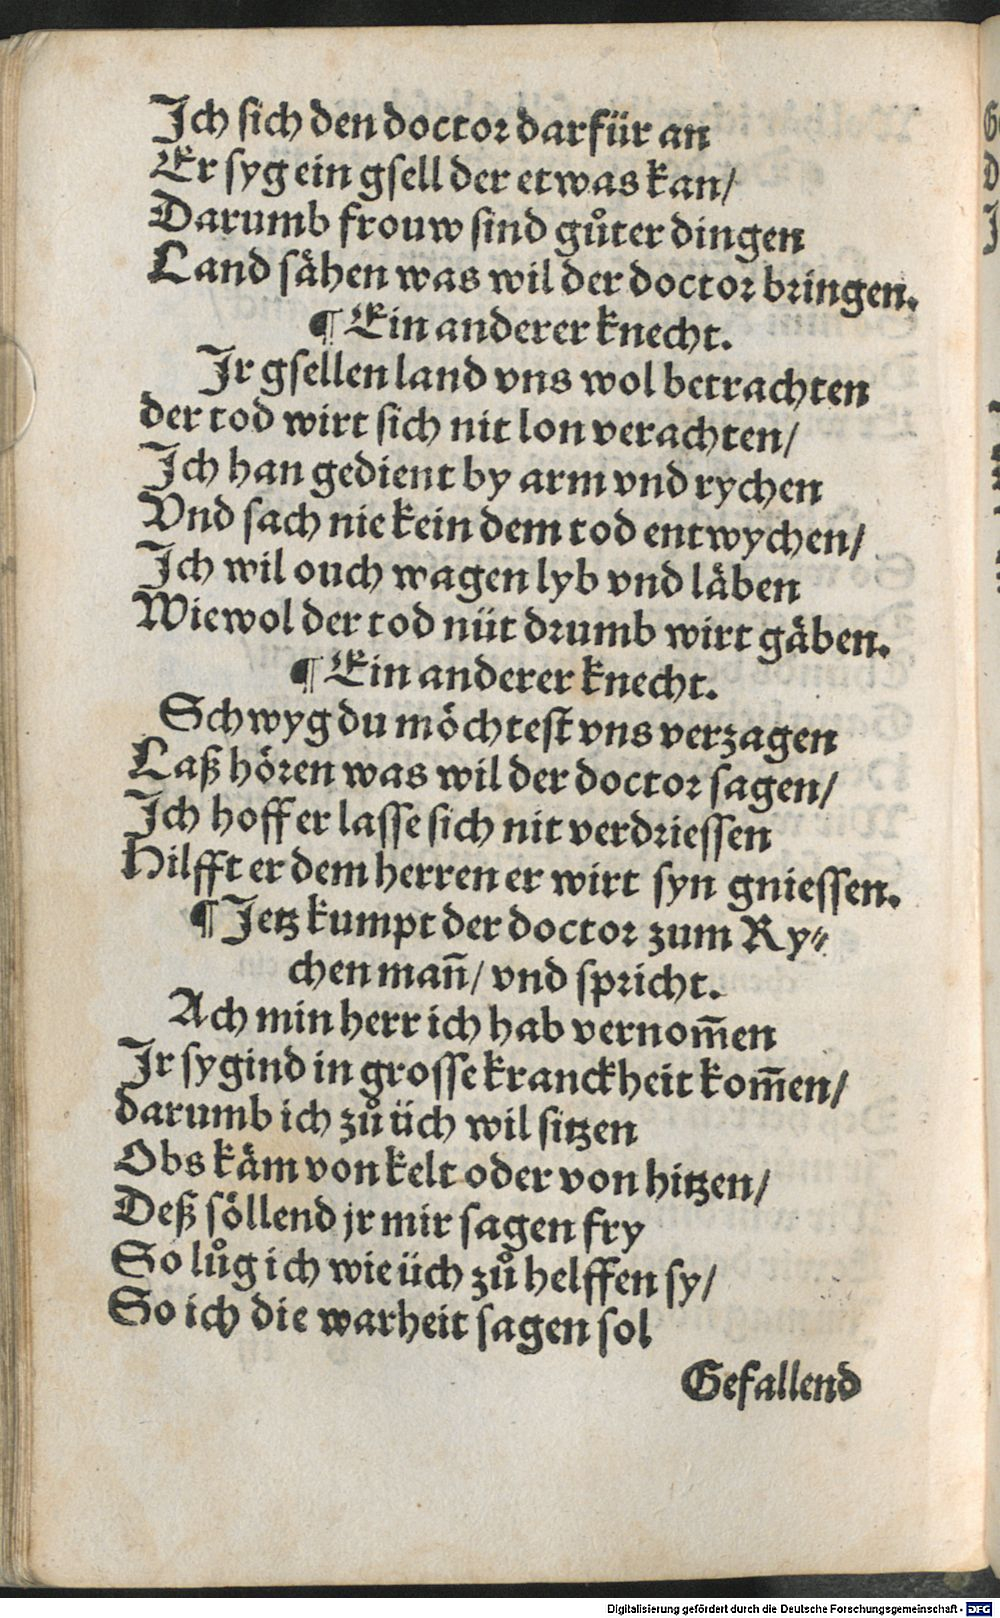 Ich sich den doctor darfür an
Er syg ein gsell der etwas kan/
Darumb frouw sind gůter dingen
Land sähen was wil der doctor bringen.
¶ Ein anderer knecht.
Ir gsellen land vns wol betrachten
der tod wirt sich nit lon verachten/
Ich han gedient by arm vnd rychen
Vnd sach nie kein dem tod entwychen/
Ich wil ouch wagen lyb vnd läben
Wiewol der tod nüt drumb wirt gäben.
¶ Ein anderer knecht.
Schwyg du möchtest vns verzagen
Laß hören was wil der doctor sagen/
Ich hoff er lasse sich nit verdriessen
Hilfft er dem herren er wirt syn gniessen.
¶ Jetz kumpt der doctor zum Ry⸗
chen mañ/ vnd spricht.
Ach min herr ich hab vernom̃en
Ir sygind in grosse kranckheit kom̃en/
darumb ich zů üch wil sitzen
Obs käm von kelt oder von hitzen/
Deß söllend jr mir sagen fry
So lůg ich wie üch zů helffen sy/
So ich die warheit sagen sol
Gefallend
Digitalisierung gefördert durch die Deutsche Forschungsgemeinschaft - DFG